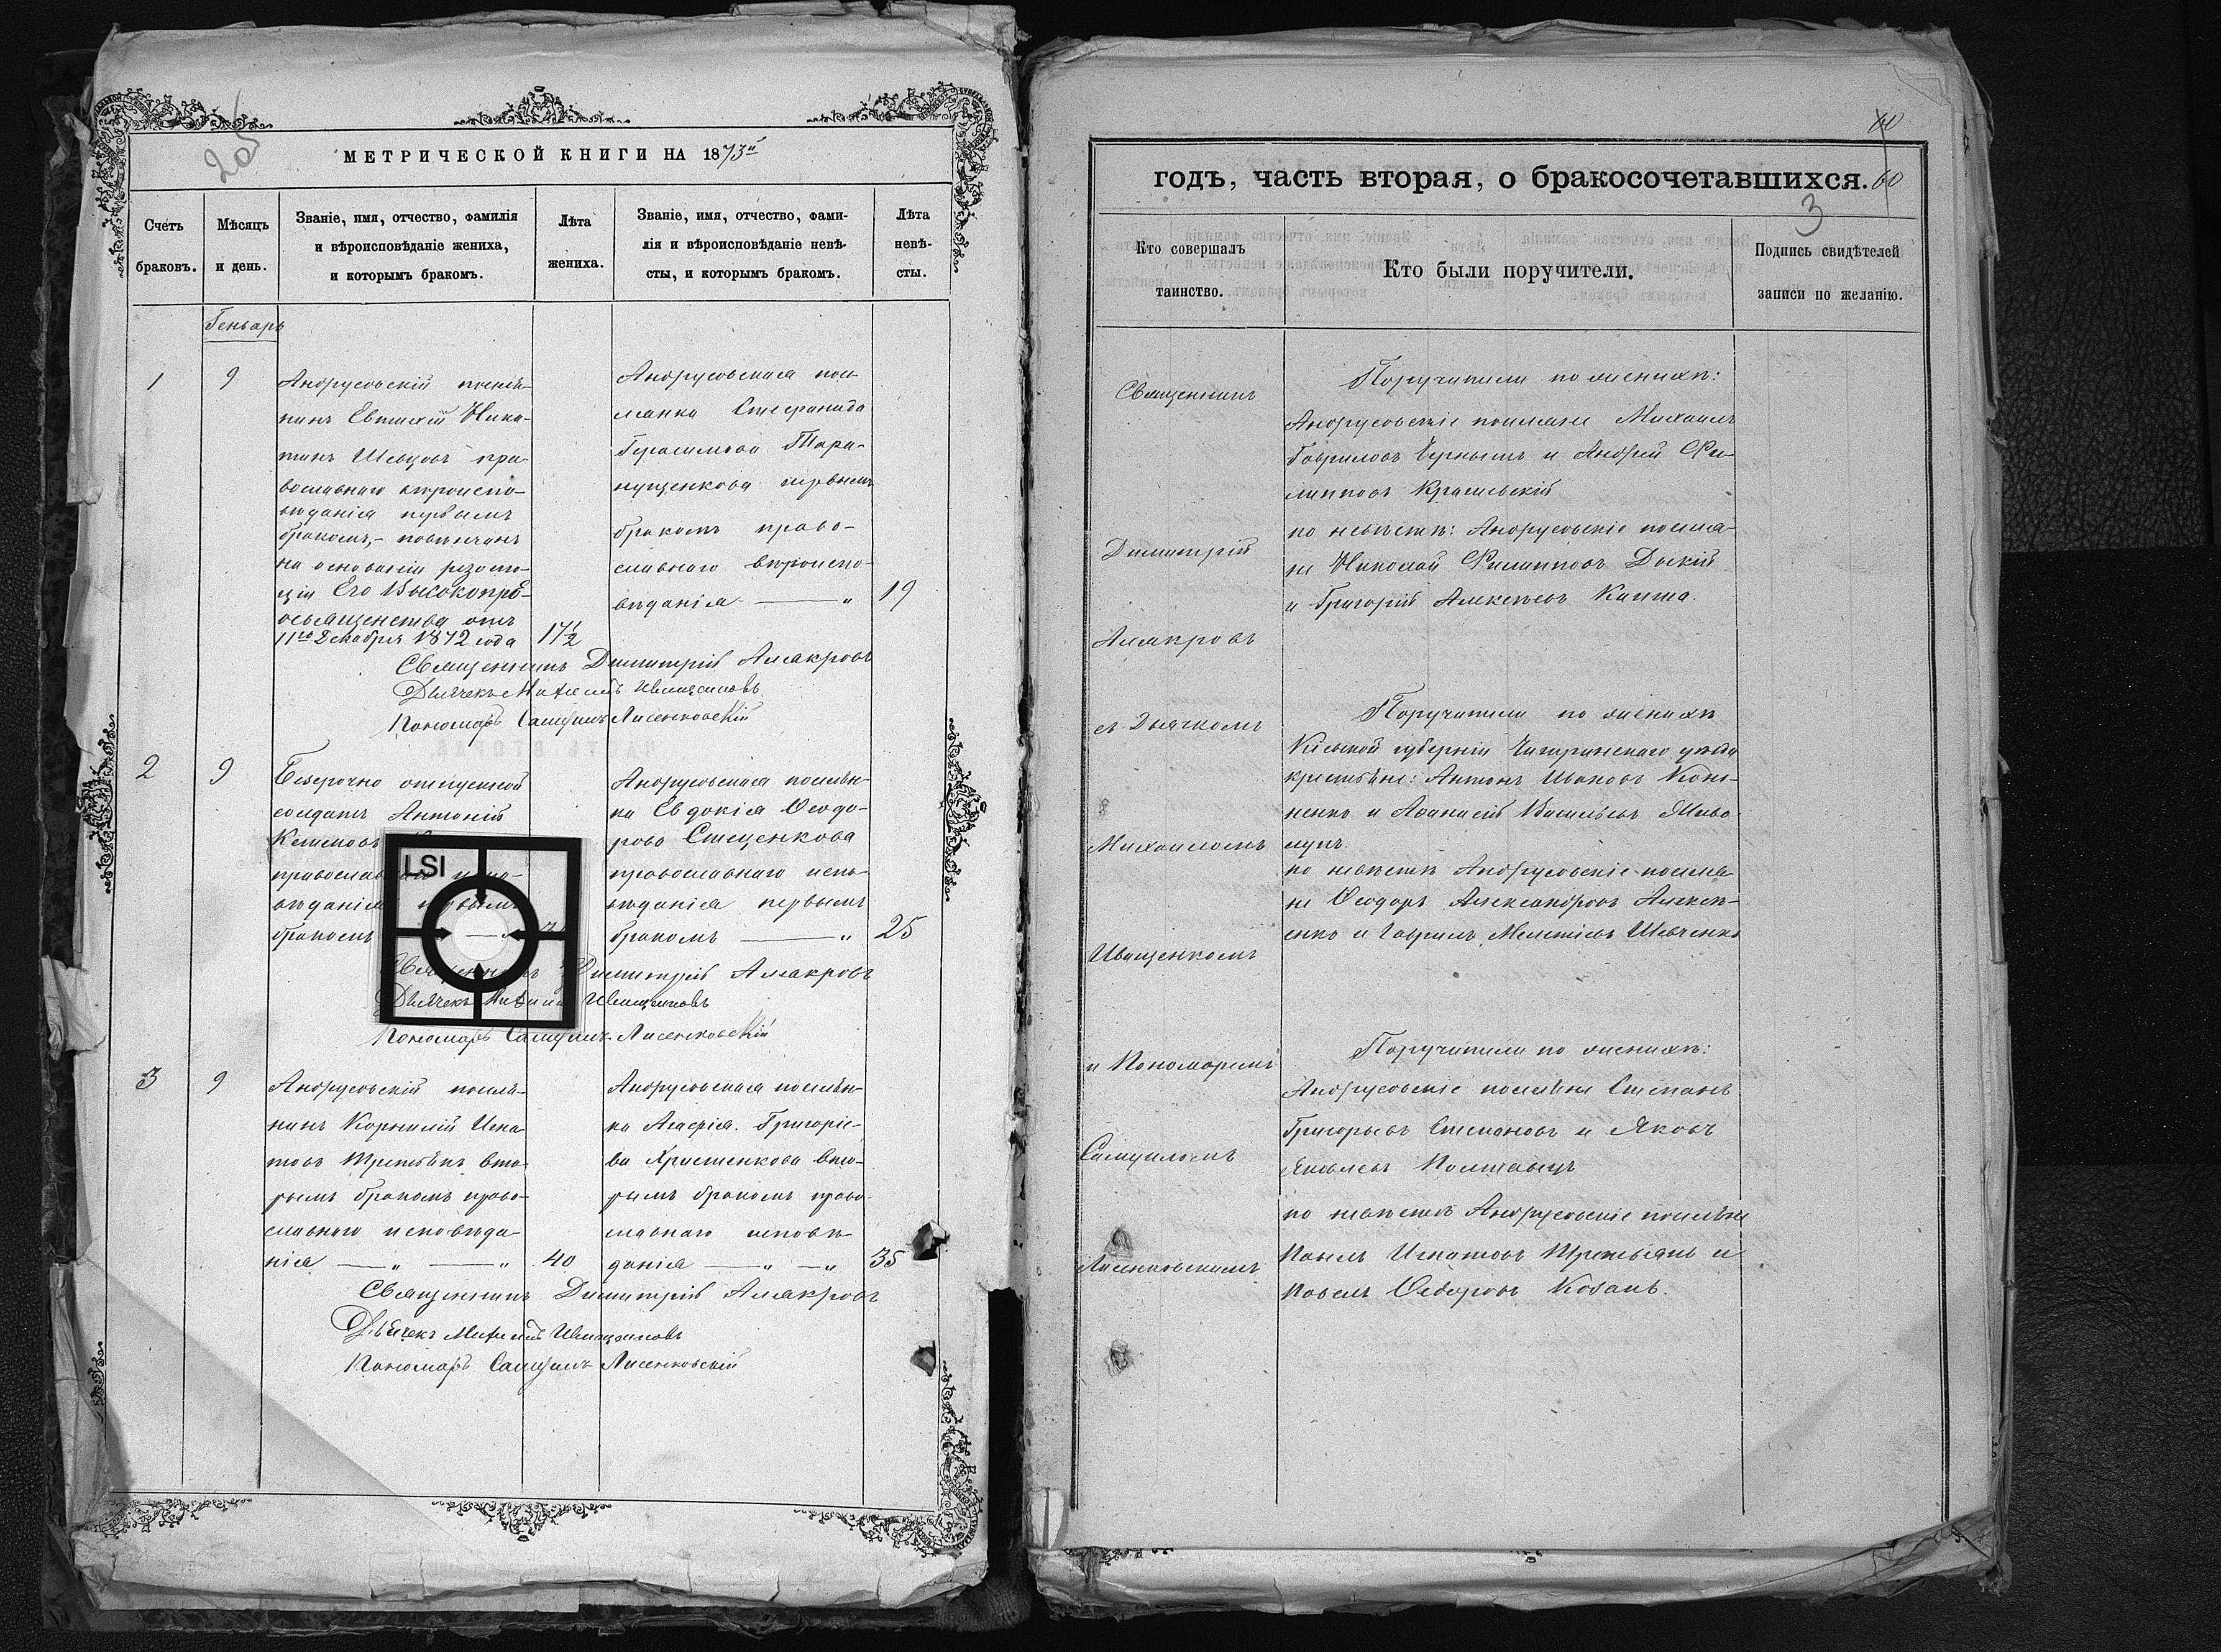 МЕТРИЧЕСКОЙ КНИГИ НА 1873й
Счетъ браковъ.
Мѣсяцъ и день.
Званіе, имя, отчество, фамилія
и вѣроисповѣданіе жениха,
и которымъ бракомъ.
Лѣта жениха.
Званіе, имя, отчество, фами-
лія и вѣроисповѣданіе невѣ-
сты, и которымъ бракомъ.
Лѣта невѣ-
сты.
Генварь
1
9
Андрусовскій поселя-
нинъ Евтихій Ники-
тинъ Шевцовъ пра-
вославнаго вѣроиспо-
вѣданія первымъ
бракомъ,- повѣнчанъ
на основаніи резолю-
ціи Его Высокопре-
освященства отъ
11го Декабря 1872 года
17 1/2
Андрусовская посе-
лянка Стефанида
Герасимова
первымъ
бракомъ право-
славнаго вѣроиспо-
вѣданія — „
19
Священникъ Димитрій
Дьячекъ
Пономарь Самуилъ Лисенковскій
2
9
Безсрочно отпускной
солдатъ Антоній
православнаго испо-
вѣданія первымъ
бракомъ —
Андрусовская поселян-
ка Евдокія Ѳеодо-
рова Стеценкова
православнаго испо-
вѣданія первымъ
бракомъ — „
25
LSI
Священникъ Димитрій
Дьячекъ
Пономарь Самуилъ Лисенковскій
3
9
Андрусовскій поселя-
нинъ Корнилій Игна-
товъ Третьякъ вто-
рымъ бракомъ право-
славнаго исповѣда-
нія — „ — „
40
Андрусовская поселян-
ка Агафія Григоріе-
ва Христенкова вто-
рымъ бракомъ право-
славнаго исповѣ-
данія — „ — „
35
Священникъ Димитрій
Дьячекъ
Пономарь Самуилъ Лисенковскій
60
годъ, часть вторая, о бракосочетавшихся. 60
3
Кто совершалъ таинство.
Кто были поручители.
Подпись свидѣтелей
записи по желанію.
Священникъ
Димитрій
съ Дьячкомъ
Михаиломъ
Иващенкомъ
и Пономаремъ
Самуиломъ
Лисенковскимъ
Поручители по женихѣ:
Андрусовскіе поселяне Михаилъ
Гавриловъ Чернышъ и Андрей Фи-
липповъ
по невѣстѣ: Андрусовскіе поселя-
не Николай Филипповъ
и Григорій Алексѣевъ Капта.
Поручители по женихѣ
Кіевской губерніи Чигиринскаго уѣзда
крестьяне: Антонъ Ивановъ
ненко и Аѳанасій Васильевъ
по невѣстѣ Андрусовскіе поселя-
не Ѳеодоръ Александровъ Алексѣ-
енко и Гаврилъ Мелетіевъ Шевченко
Поручители по женихѣ:
Андрусовскіе поселяне Степанъ
Григорьевъ Степановъ и Яковъ
Яковлевъ Полтавецъ
по невѣстѣ Андрусовскіе поселяне
Павелъ Игнатовъ Третьякъ и
Павелъ Ѳедоровъ Кобанъ.